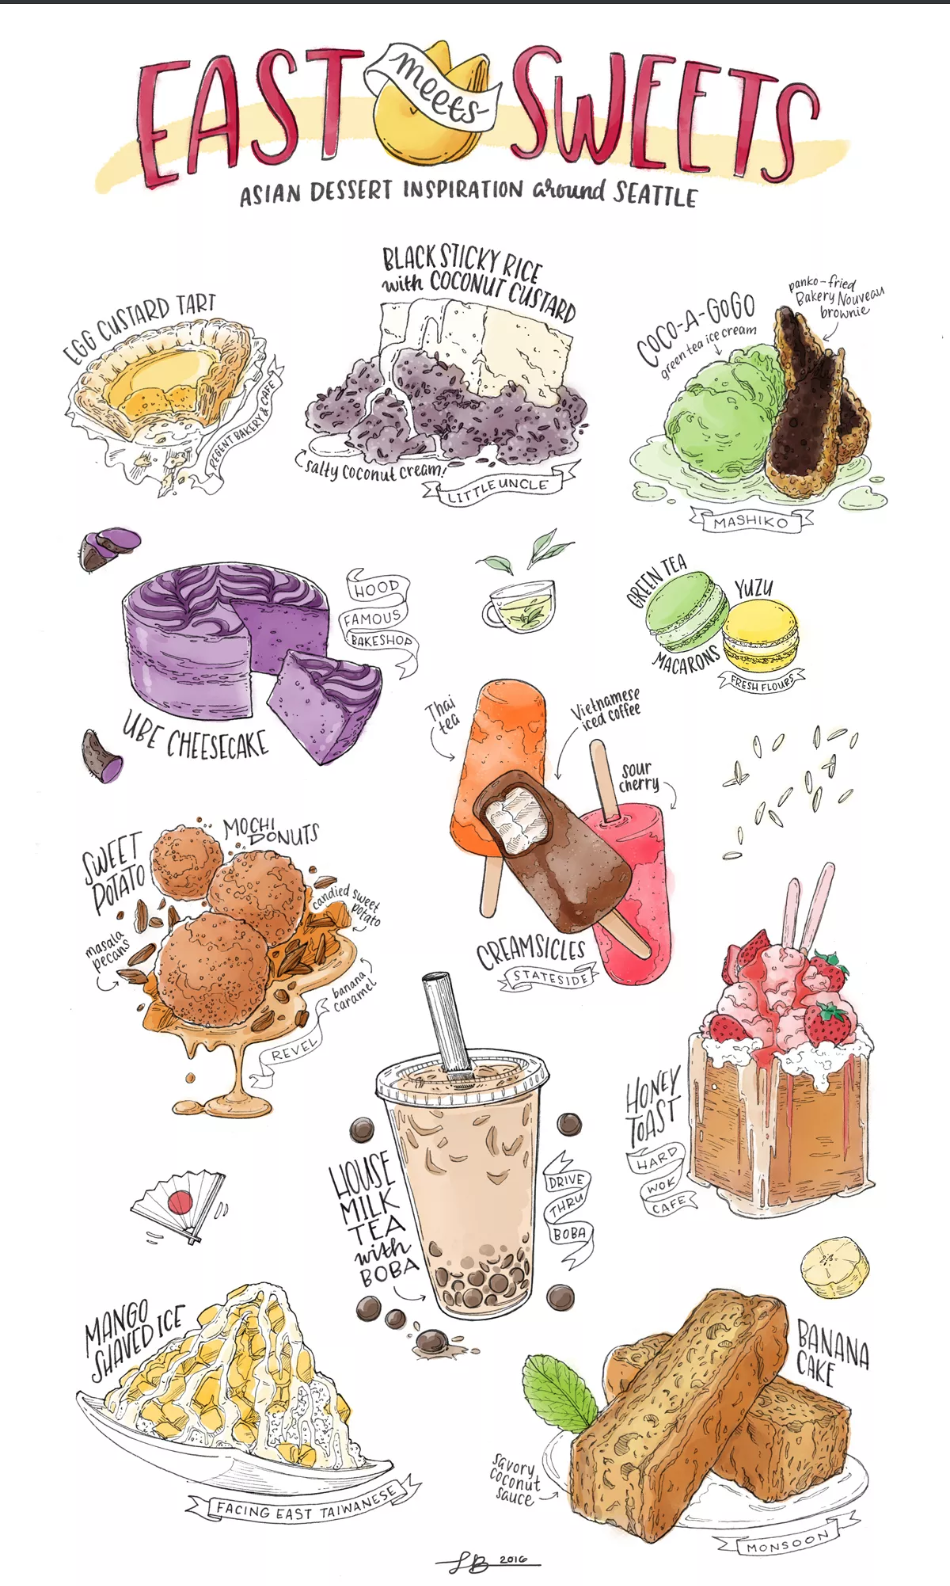 EAST meets SWEETS
ASIAN DESSERT INSPIRATION around SEATTLE
EGG CUSTARD TART
BAKERY & CAFE
BLACK STICKY RICE
with COCONUT CUSTARD
salty coconut cream!
LITTLE UNCLE
COCO-A-GOGO
green tea ice cream
panko-fried
Bakery Nouveau
brownie
MASHIKO
HOOD
FAMOUS
BAKESHOP
UBE CHEESECAKE
GREEN TEA
YUZU
MACARONS
FRESH FLOURS
Thai
tea
Vietnamese
iced coffee
sour
cherry
CREAMSICLES
STATESIDE
SWEET
POTATO
MOCHI
DONUTS
masala
pecans
candied sweet
potato
banana
caramel
REVEL
HOUSE
MILK
TEA
with
BOBA
DRIVE
THRU
BOBA
HONEY
TOAST
HARD
WOK
CAFE
MANGO
SHAVED ICE
FACING EAST TAIWANESE
BANANA
CAKE
savory
coconut
sauce
MONSOON
LB 2016